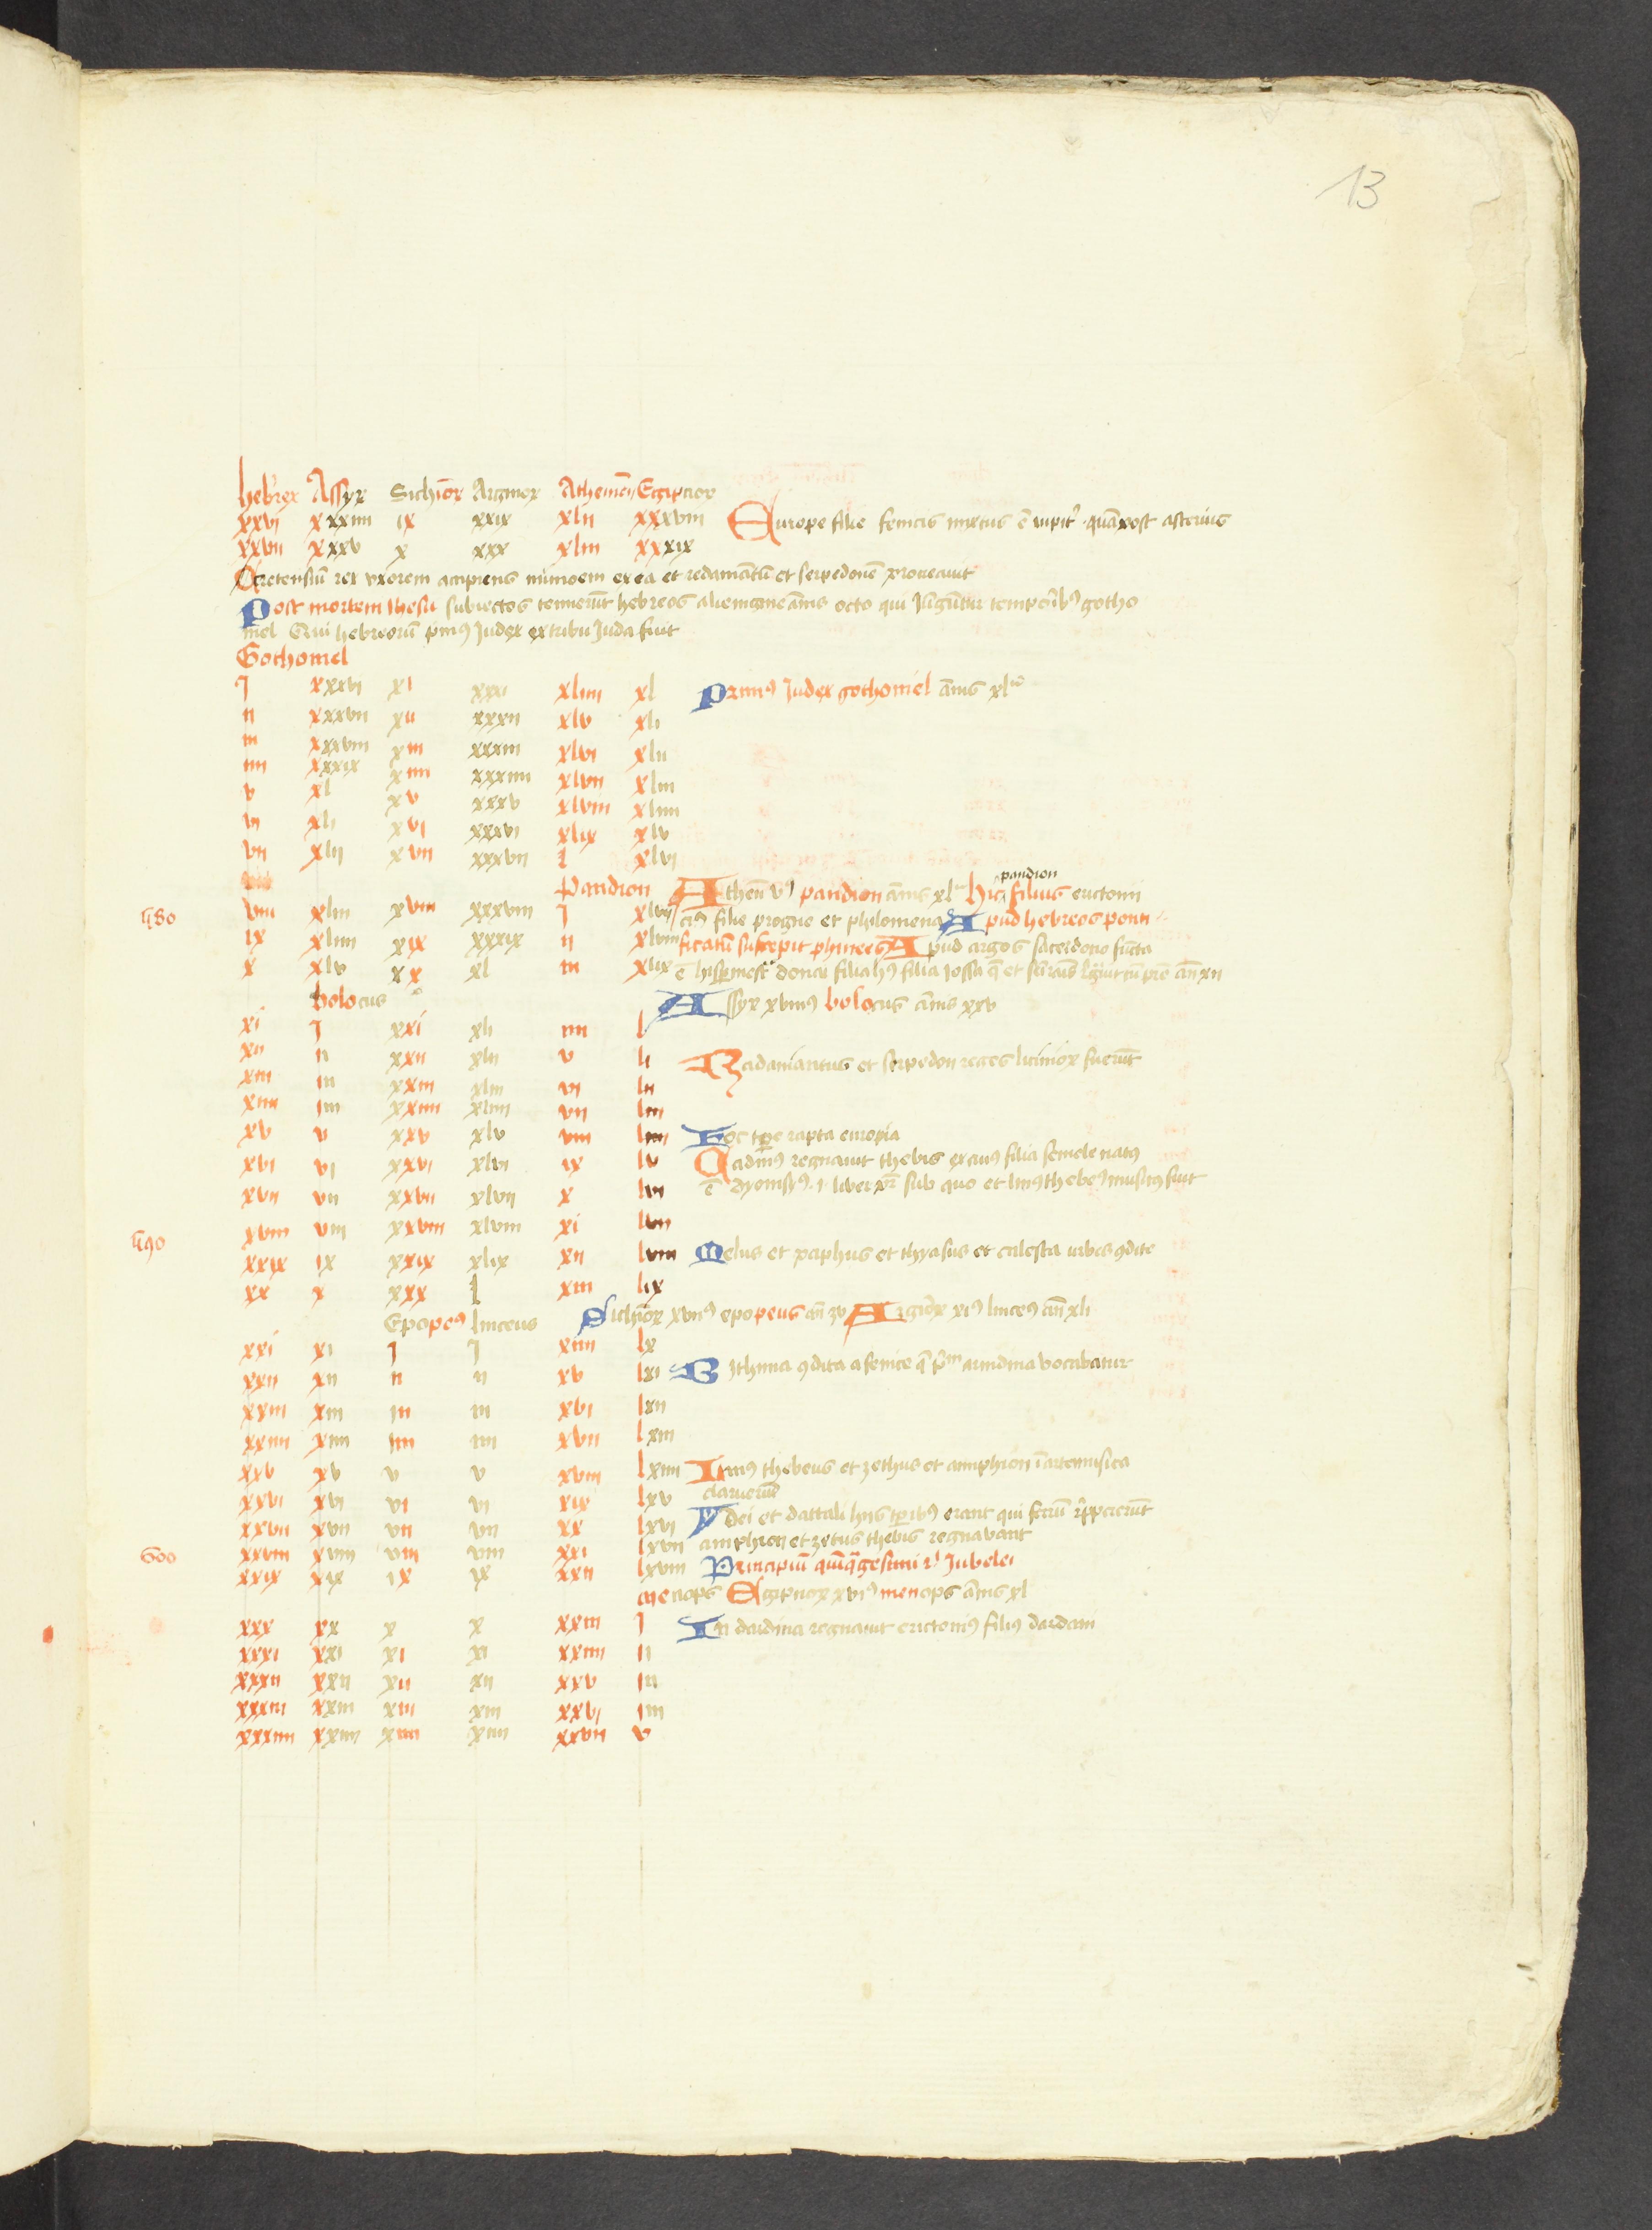 13
hebrex Assyr Sichior Argiuor Atheniens Egiptior
xxvj xxxiiii ix xxix xlii xxxviii Europe filie fenicis mixtus e iupiter quam post asterius
xxvii xxxv x xxx xliii xxxix
Cretensiū rex uxorem accipiens minoem ex ea et redamātū et serpedonē procreauit
Post mortem Ihesu subiectos tenuerūt hebreos alienigine ānis octo qui iūguntur temporibꝰ gotho
niel Qui hebreorū pmꝰ Judex ex tribu Juda fuit
Gothoniel
j xxxvi xi xxxi xliiii xl Primꝰ Judex gothoniel ānis xl
ii xxxvii xii xxxii xlv xli
iii xxxviii xiii xxxiii xlvi xlii
iiii xxxix xiiii xxxiiii xlvii xliii
v xl xv xxxv xlviii xliiii
vi xli xvi xxxvi xlix xlv
vii xlii xvii xxxvii l xlvi
pandion
Pandion Atheñ vꝰ pandion ānis xl hic filius euctoni
480 viii xliii xviii xxxviii j xlvii cꝰ filie progne et philomena Apud hebreos ponti
ix xliiii xix xxxix ii xlviii ficatū suscepit phinees Apud argos sacerdotio fūcta
x xlv xx xl iii xlix
bolocus Assyr xviiiꝰ bolocus ānis xxv
xi j xxi xli iiii l
xii ii xxii xlii v li Radamantus et serpedon reges licinior fuerūt
xiii iii xxiii xliii vi lii
xiiii iiii xxiiii xliiii vii liii
xv v xxv xlv viii liiii Hoc tpe rapta europia
xvi vi xxvi xlvi ix lv Cadmꝰ regnauit thebis ex cuiꝰ filia semele natꝰ
xvii vii xxvii xlvii x lvi ē dyonisꝰ .i. liber pr̄ sub quo et linꝰ thebeꝰ musicꝰ fuit
xviii viii xxviii xlviii xi lvii
490 xxix ix xxix xlix xii lviii Melus et paphus et thyasus et calesta urbes ꝯdite
xx x xxx l xiii lix
Epopeꝰ linceus Sichior xviiꝰ epopeus añ xv Argiuor xiꝰ linceꝰ añ xli
xxi xi j j xiiii lx
xxii xii ii ii xv lxi Bithinia ꝯdita a fenice q̄ pmū ariadina vocabatur
xxiii xiii iii iii xvi lxii
xxiiii xiiii iiii iiii xvii lxiii
xxv xv v v xviii lxiiii Linꝰ thebeus et zethus et amphion ī arte musica
xxvi xvi vi vi xix lxv claruerūt
xxvii xvii vii vii xx lxvi Ydei et dattali hijs tp̄ibꝰ erant qui ferrū reppererūt
xxviii xviii viii viii xxi lxvii amphion et zetus thebis regnabant
500 xxix xix ix ix xxii lxviii Principiū quīquagesimi Jubelei
Menops Egiptior xviꝰ menops ānis xl
xxx xx x x xxiii j In dardina regnauit erictoniꝰ filiꝰ dardani
xxxi xxi xi xi xxiiii ii
xxxii xxii xii xii xxv iii
xxxiii xxiii xiii xiii xxvi iiii
xxxiiii xxiiii xiiii xiiii xxvii v